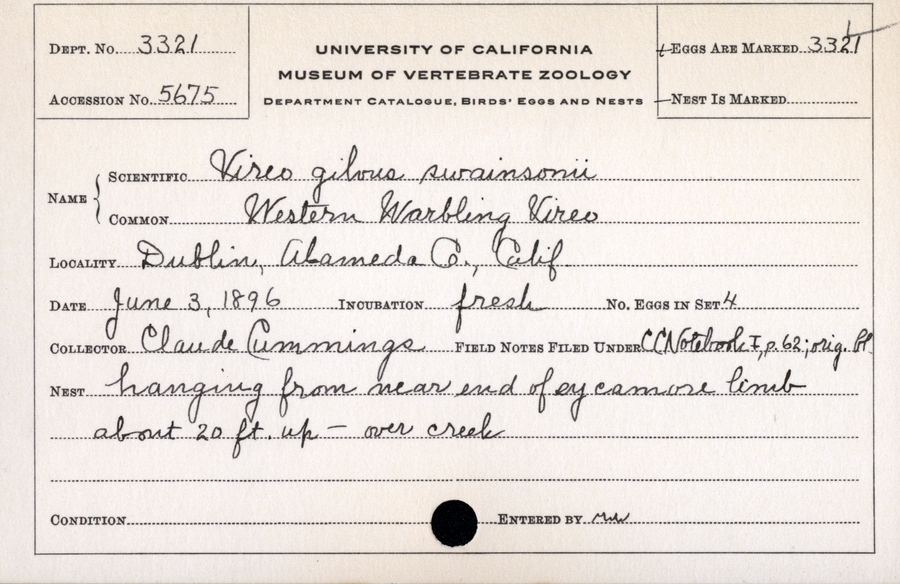 DEPT. NO. 3321
UNIVERSITY OF CALIFORNIA
MUSEUM OF VERTEBRATE ZOOLOGY
DEPARTMENT CATALOGUE, BIRDS' EGGS AND NESTS
ACCESSION NO. 5675
EGGS ARE MARKED 3321
NEST IS MARKED
NAME
SCIENTIFIC Vireo gilvus swainsonii
COMMON Western Warbling Vireo
LOCALITY Dublin, Alameda Co., Calif.
DATE June 3, 1896 INCUBATION fresh NO. EGGS IN SET 4
COLLECTOR Claude Cummings FIELD NOTES FILED UNDER CC Notebook I, p. 62; orig.
NEST hanging from near end of sycamore limb
about 20 ft. up - over creek
CONDITION ENTERED BY